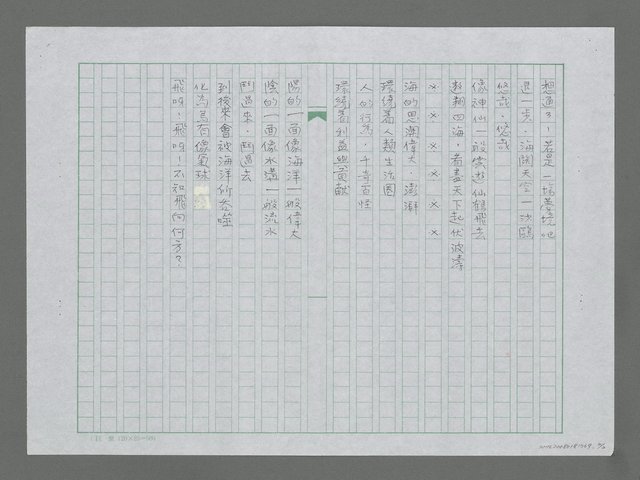 想通了！若是一場夢境吧
退一步，海闊天空一沙鷗
悠哉，悠哉
像神仙一般雲遊仙鶴飛去
遨翔四海，看盡天下起伏波濤
× × × × × ×
海的思潮偉大，澎湃
環繞着人類生活圈
人的行為，千奇百怪
環繞着利益與貢獻
陽的一面像海洋一般偉大
陰的一面像水溝一般流水
鬥過來，鬥過去
到後來會被海洋所吞噬
化為烏有像氣球
飛呀！飛呀！不知飛向何方？